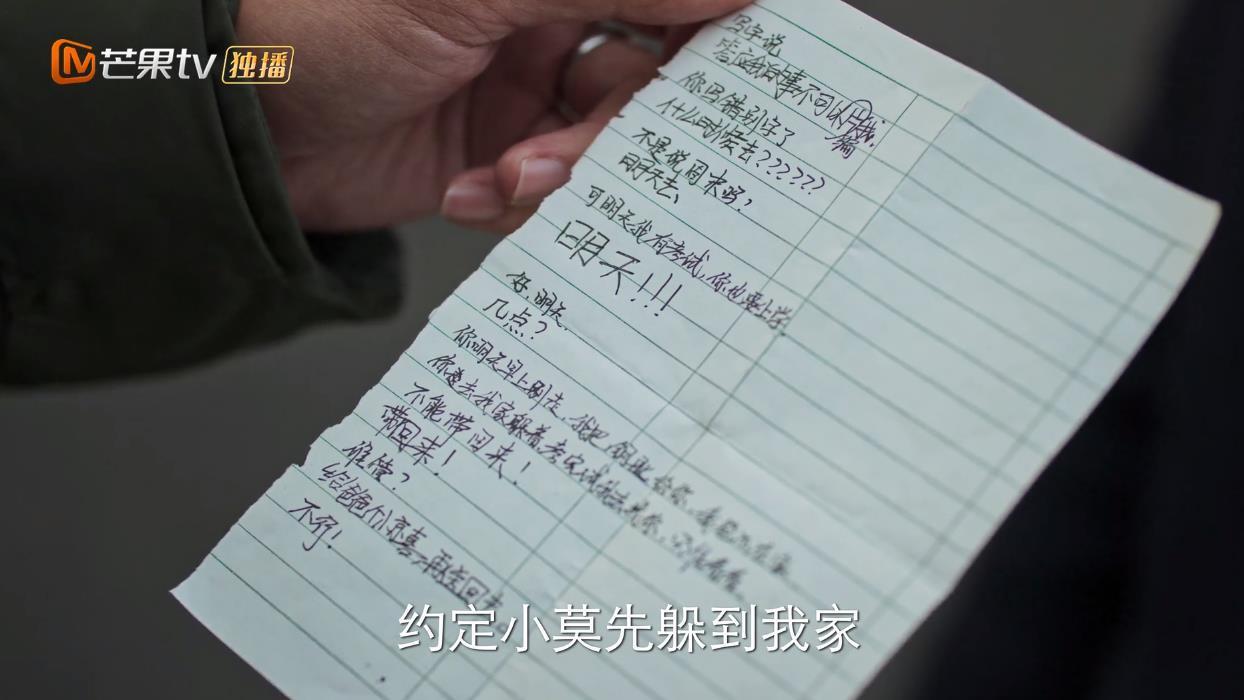 芒果tv 独播
写字说
答应我的事不可以
篇
你写错别字了
什么时候去??????
不是说周末吗?
周六去、
可明天我有考试,你也要上学.
明天!!!
好,明天.
几点?
你明天早上别走,我把钥匙给你,
你要去我家躲着,考完试我去见你,
不能带回来!
带回来!
谁借?
给爸爸个惊喜,再送回去
不行!
约定小莫先躲到我家